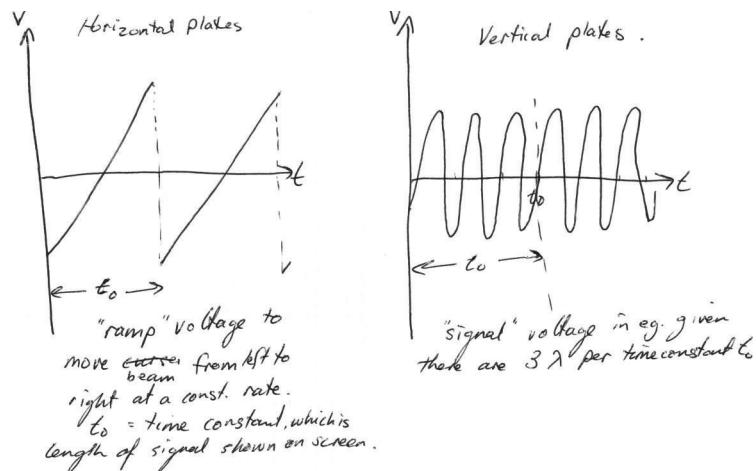 V
Horizontal plates
t
t₀
"ramp" voltage to
move beam from left to
right at a const. rate.
t₀ = time constant, which is
length of signal shown on screen.
V
Vertical plates.
t
t₀
t₀
"signal" voltage in eg. given
there are 3 λ per time constant t₀